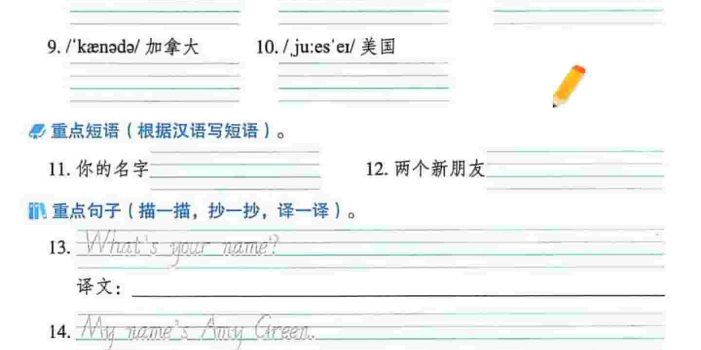 9. /ˈkænədə/ 加拿大 10. /ˌjuːesˈeɪ/ 美国
重点短语（根据汉语写短语）。
11. 你的名字 12. 两个新朋友
重点句子（描一描，抄一抄，译一译）。
13. What's your name?
译文：
14. My name's Amy Green.